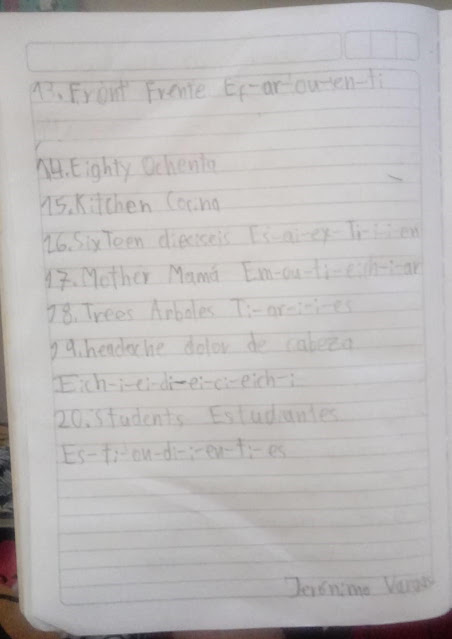 13. Front Frente Ef-ar-ou-en-ti
14. Eighty Ochenta
15. Kitchen Cocina
16. SixTeen dieciseis Es-ai-ex-Ti-i-i-en
17. Mother Mamá Em-ou-ti-eich-i-ar
18. Trees Arboles Ti-ar-i-i-es
19. headache dolor de cabeza
Eich-i-ei-di-ei-ci-eich-i
20. Students Estudiantes
Es-ti-ou-di-i-en-ti-es
Jerónimo